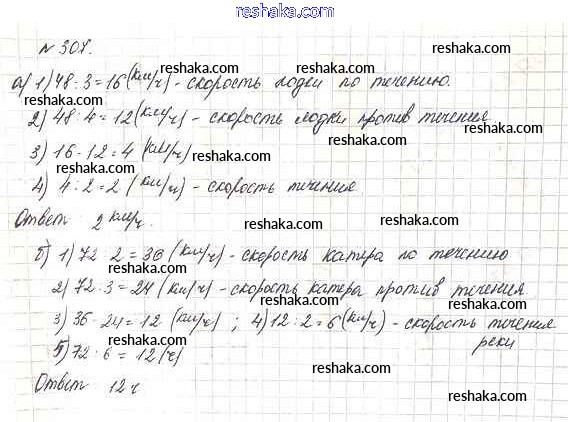 reshaka.com
№ 308.
reshaka.com
а) 1) 48 : 3 = 16 (км/ч) - скорость лодки по течению.
reshaka.com reshaka.com reshaka.com
2) 48 : 4 = 12 (км/ч) - скорость лодки против течения
reshaka.com reshaka.com
3) 16 - 12 = 4 (км/ч)
reshaka.com reshaka.com reshaka.com
4) 4 : 2 = 2 (км/ч) - скорость течения
reshaka.com
Ответ 2 км/ч.
reshaka.com reshaka.com
б) 1) 72 : 2 = 36 (км/ч) - скорость катера по течению
reshaka.com reshaka.com
2) 72 : 3 = 24 (км/ч) - скорость катера против течения
reshaka.com reshaka.com
3) 36 - 24 = 12 (км/ч) ; 4) 12 : 2 = 6 (км/ч) - скорость течения
реки
reshaka.com reshaka.com
5) 72 : 6 = 12 (ч)
reshaka.com
Ответ 12 ч
reshaka.com reshaka.com